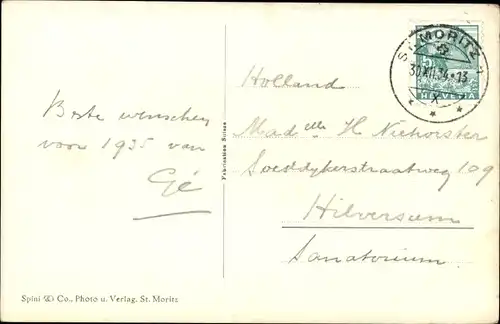 Beste wenschen
voor 1935 van
Gé
Spini & Co., Photo u. Verlag, St. Moritz
Fabrication Suisse
ST. MORITZ 1
30.XII.34-13
X
HELVETIA
Holland
Mad elle H Niehorster
Soestdijkerstraatweg 109
Hilversum
Sanatorium